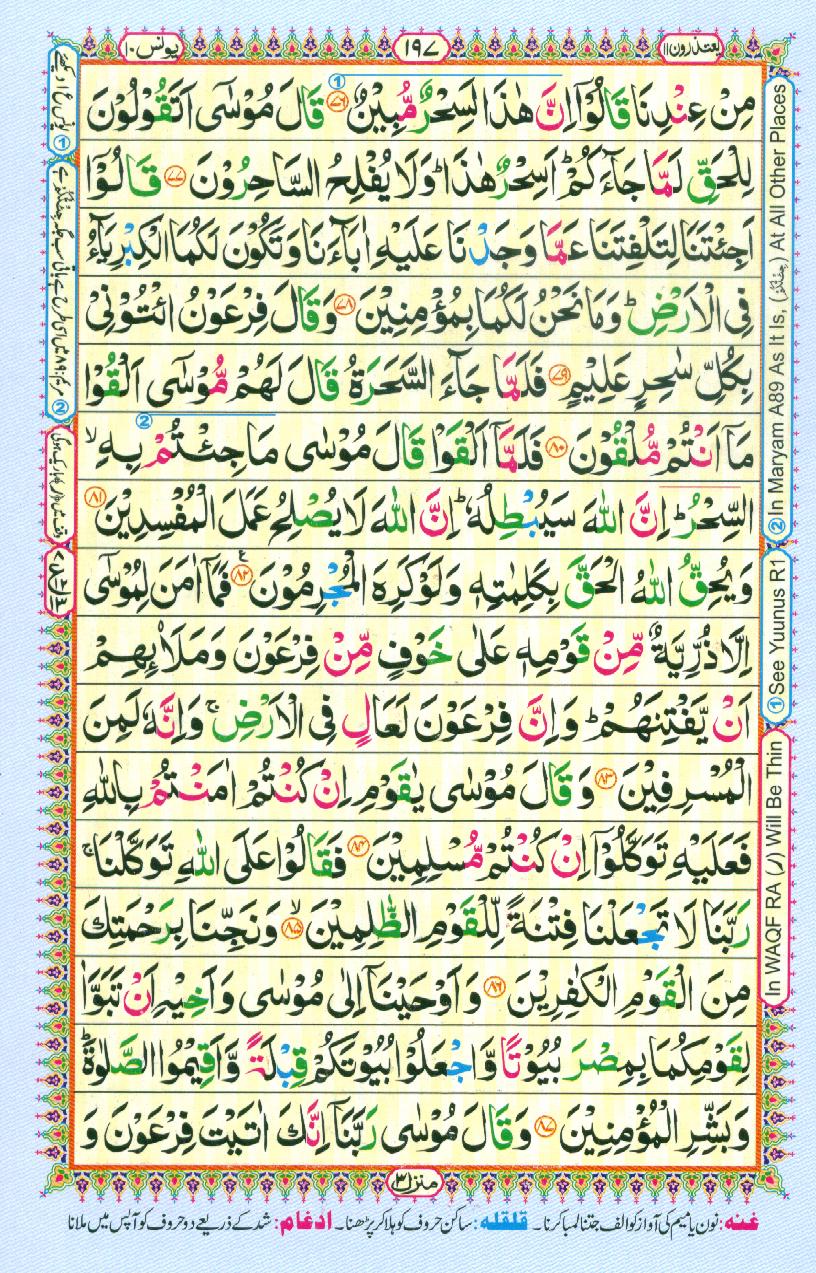 یعتذرون ۱۱
۱۹۷
یونس ۱۰
مِنْ عِنْدِنَا قَالُوْۤا اِنَّ هٰذَا لَسِحْرٌ مُّبِیْنٌ ﴿۷۶﴾ قَالَ مُوْسٰۤی اَتَقُوْلُوْنَ
لِلْحَقِّ لَمَّا جَآءَكُمْ ؕ اَسِحْرٌ هٰذَا ؕ وَلَا یُفْلِحُ السّٰحِرُوْنَ ﴿۷۷﴾ قَالُوْۤا
اَجِئْتَنَا لِتَلْفِتَنَا عَمَّا وَجَدْنَا عَلَیْهِ اٰبَآءَنَا وَتَكُوْنَ لَكُمَا الْكِبْرِیَآءُ
فِی الْاَرْضِ ؕ وَمَا نَحْنُ لَكُمَا بِمُؤْمِنِیْنَ ﴿۷۸﴾ وَقَالَ فِرْعَوْنُ ائْتُوْنِیْ
بِكُلِّ سٰحِرٍ عَلِیْمٍ ﴿۷۹﴾ فَلَمَّا جَآءَ السَّحَرَةُ قَالَ لَهُمْ مُّوْسٰۤی اَلْقُوْا
مَاۤ اَنْتُمْ مُّلْقُوْنَ ﴿۸۰﴾ فَلَمَّاۤ اَلْقَوْا قَالَ مُوْسٰی مَا جِئْتُمْ بِهِ ۙ
السِّحْرُ ؕ اِنَّ اللّٰهَ سَیُبْطِلُهٗ ؕ اِنَّ اللّٰهَ لَا یُصْلِحُ عَمَلَ الْمُفْسِدِیْنَ ﴿۸۱﴾
وَیُحِقُّ اللّٰهُ الْحَقَّ بِكَلِمٰتِهٖ وَلَوْ كَرِهَ الْمُجْرِمُوْنَ ﴿۸۲﴾ فَمَاۤ اٰمَنَ لِمُوْسٰۤی
اِلَّا ذُرِّیَّةٌ مِّنْ قَوْمِهٖ عَلٰی خَوْفٍ مِّنْ فِرْعَوْنَ وَمَلَا۠ئِهِمْ
اَنْ یَّفْتِنَهُمْ ؕ وَاِنَّ فِرْعَوْنَ لَعَالٍ فِی الْاَرْضِ ۚ وَاِنَّهٗ لَمِنَ
الْمُسْرِفِیْنَ ﴿۸۳﴾ وَقَالَ مُوْسٰی یٰقَوْمِ اِنْ كُنْتُمْ اٰمَنْتُمْ بِاللّٰهِ
فَعَلَیْهِ تَوَكَّلُوْۤا اِنْ كُنْتُمْ مُّسْلِمِیْنَ ﴿۸۴﴾ فَقَالُوْا عَلَی اللّٰهِ تَوَكَّلْنَا ۚ
رَبَّنَا لَا تَجْعَلْنَا فِتْنَةً لِّلْقَوْمِ الظّٰلِمِیْنَ ﴿۸۵﴾ۙ وَنَجِّنَا بِرَحْمَتِكَ
مِنَ الْقَوْمِ الْكٰفِرِیْنَ ﴿۸۶﴾ وَاَوْحَیْنَاۤ اِلٰی مُوْسٰی وَاَخِیْهِ اَنْ تَبَوَّاٰ
لِقَوْمِكُمَا بِمِصْرَ بُیُوْتًا وَّاجْعَلُوْا بُیُوْتَكُمْ قِبْلَةً وَّاَقِیْمُوا الصَّلٰوةَ ؕ
وَبَشِّرِ الْمُؤْمِنِیْنَ ﴿۸۷﴾ وَقَالَ مُوْسٰی رَبَّنَاۤ اِنَّكَ اٰتَیْتَ فِرْعَوْنَ وَ
منزل ۳
① See Yuunus R1 ② In Maryam A89 As It Is, (جِئْتُمْ) At All Other Places
In WAQF RA (ر) Will Be Thin
غنہ: نون یا میم کی آواز کو الف جتنا لمبا کرنا۔ قلقلہ: ساکن حروف کو ہلا کر پڑھنا۔ ادغام: شد کے ذریعے دو حروف کو آپس میں ملانا